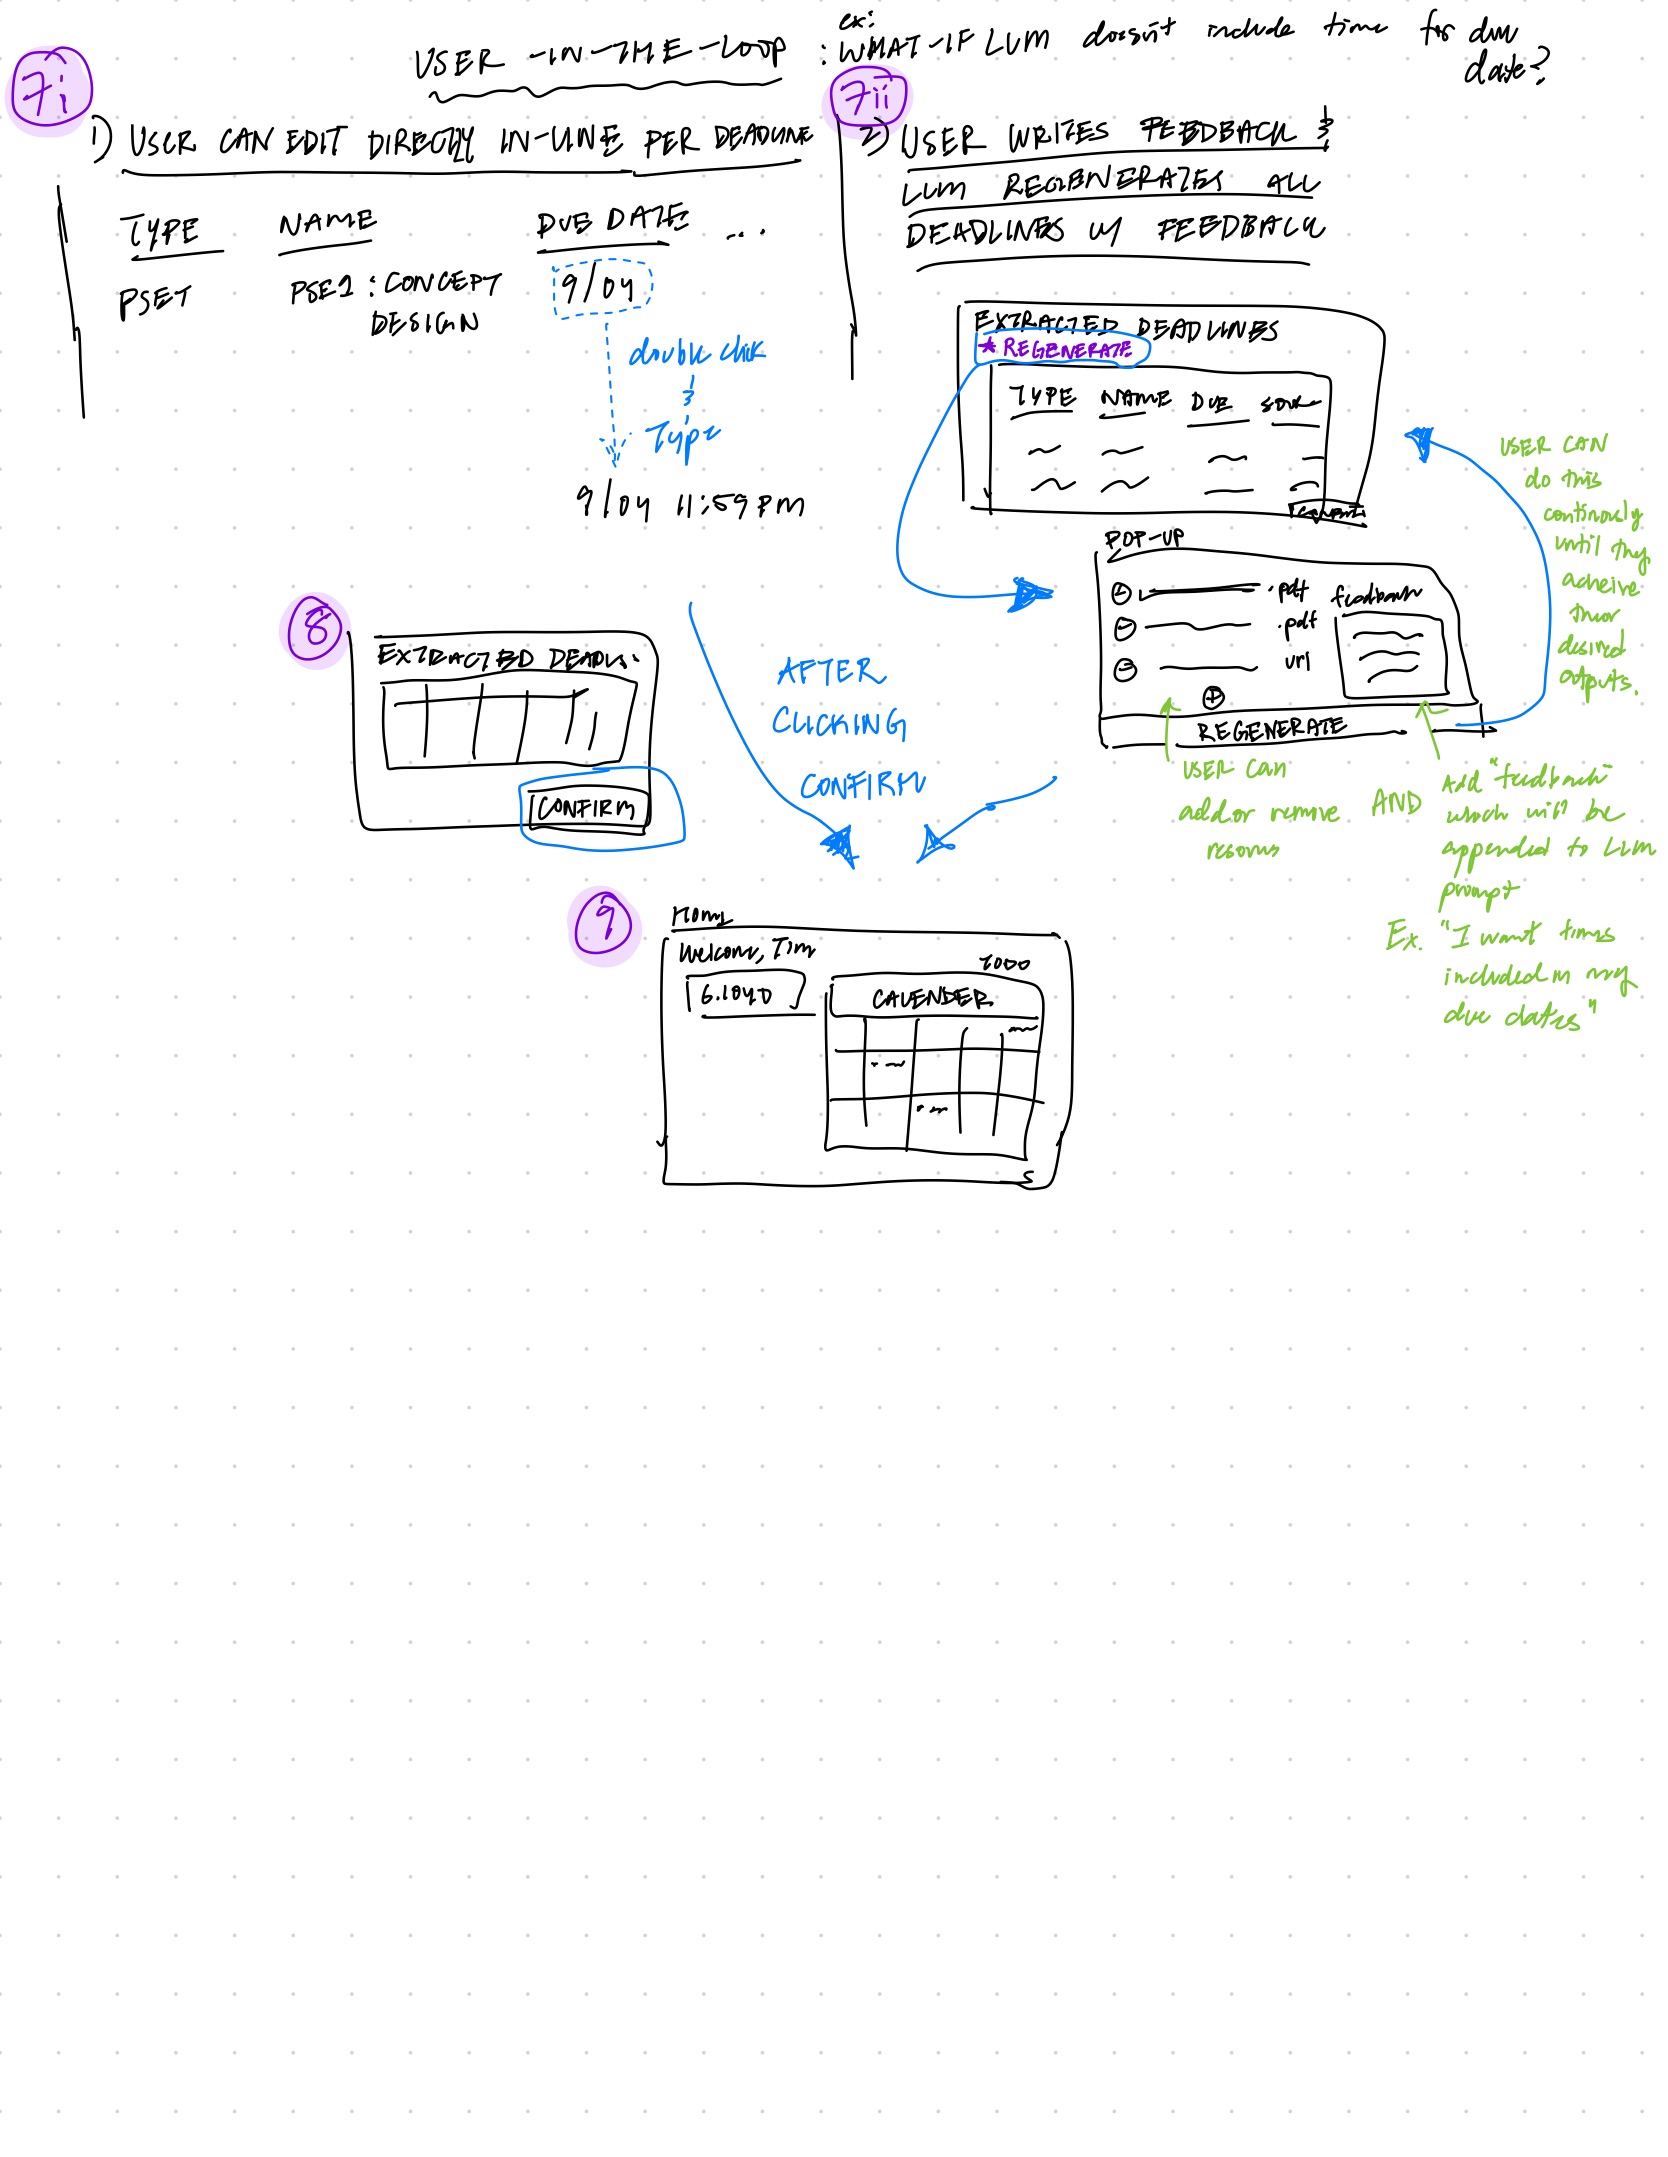 7i
USER-IN-THE-LOOP : ex: WHAT-IF LLM doesn't include time for due date?
1) USER CAN EDIT DIRECTLY IN-LINE PER DEADLINE
TYPE NAME DUE DATE ...
PSET PSE1 : CONCEPT DESIGN 9/04
double click
&
Type
9/04 11:59 PM
7ii
2) USER WRITES FEEDBACK &
LLM REGENERATES ALL
DEADLINES W/ FEEDBACK
EXTRACTED DEADLINES
* REGENERATE
TYPE NAME DUE
POP-UP
.pdf
.pdf
url
feedback
REGENERATE
USER CAN
do this
continously
until they
acheive
their
desired
outputs.
USER CAN
add or remove
AND
Add "feedback"
which will be
appended to LLM
prompt
Ex. "I want times
included in my
due dates"
8
EXTRACTED DEADLI.
CONFIRM
AFTER
CLICKING
CONFIRM
9
Home
Welcome, Tim
TODO
6.1040
CALENDER